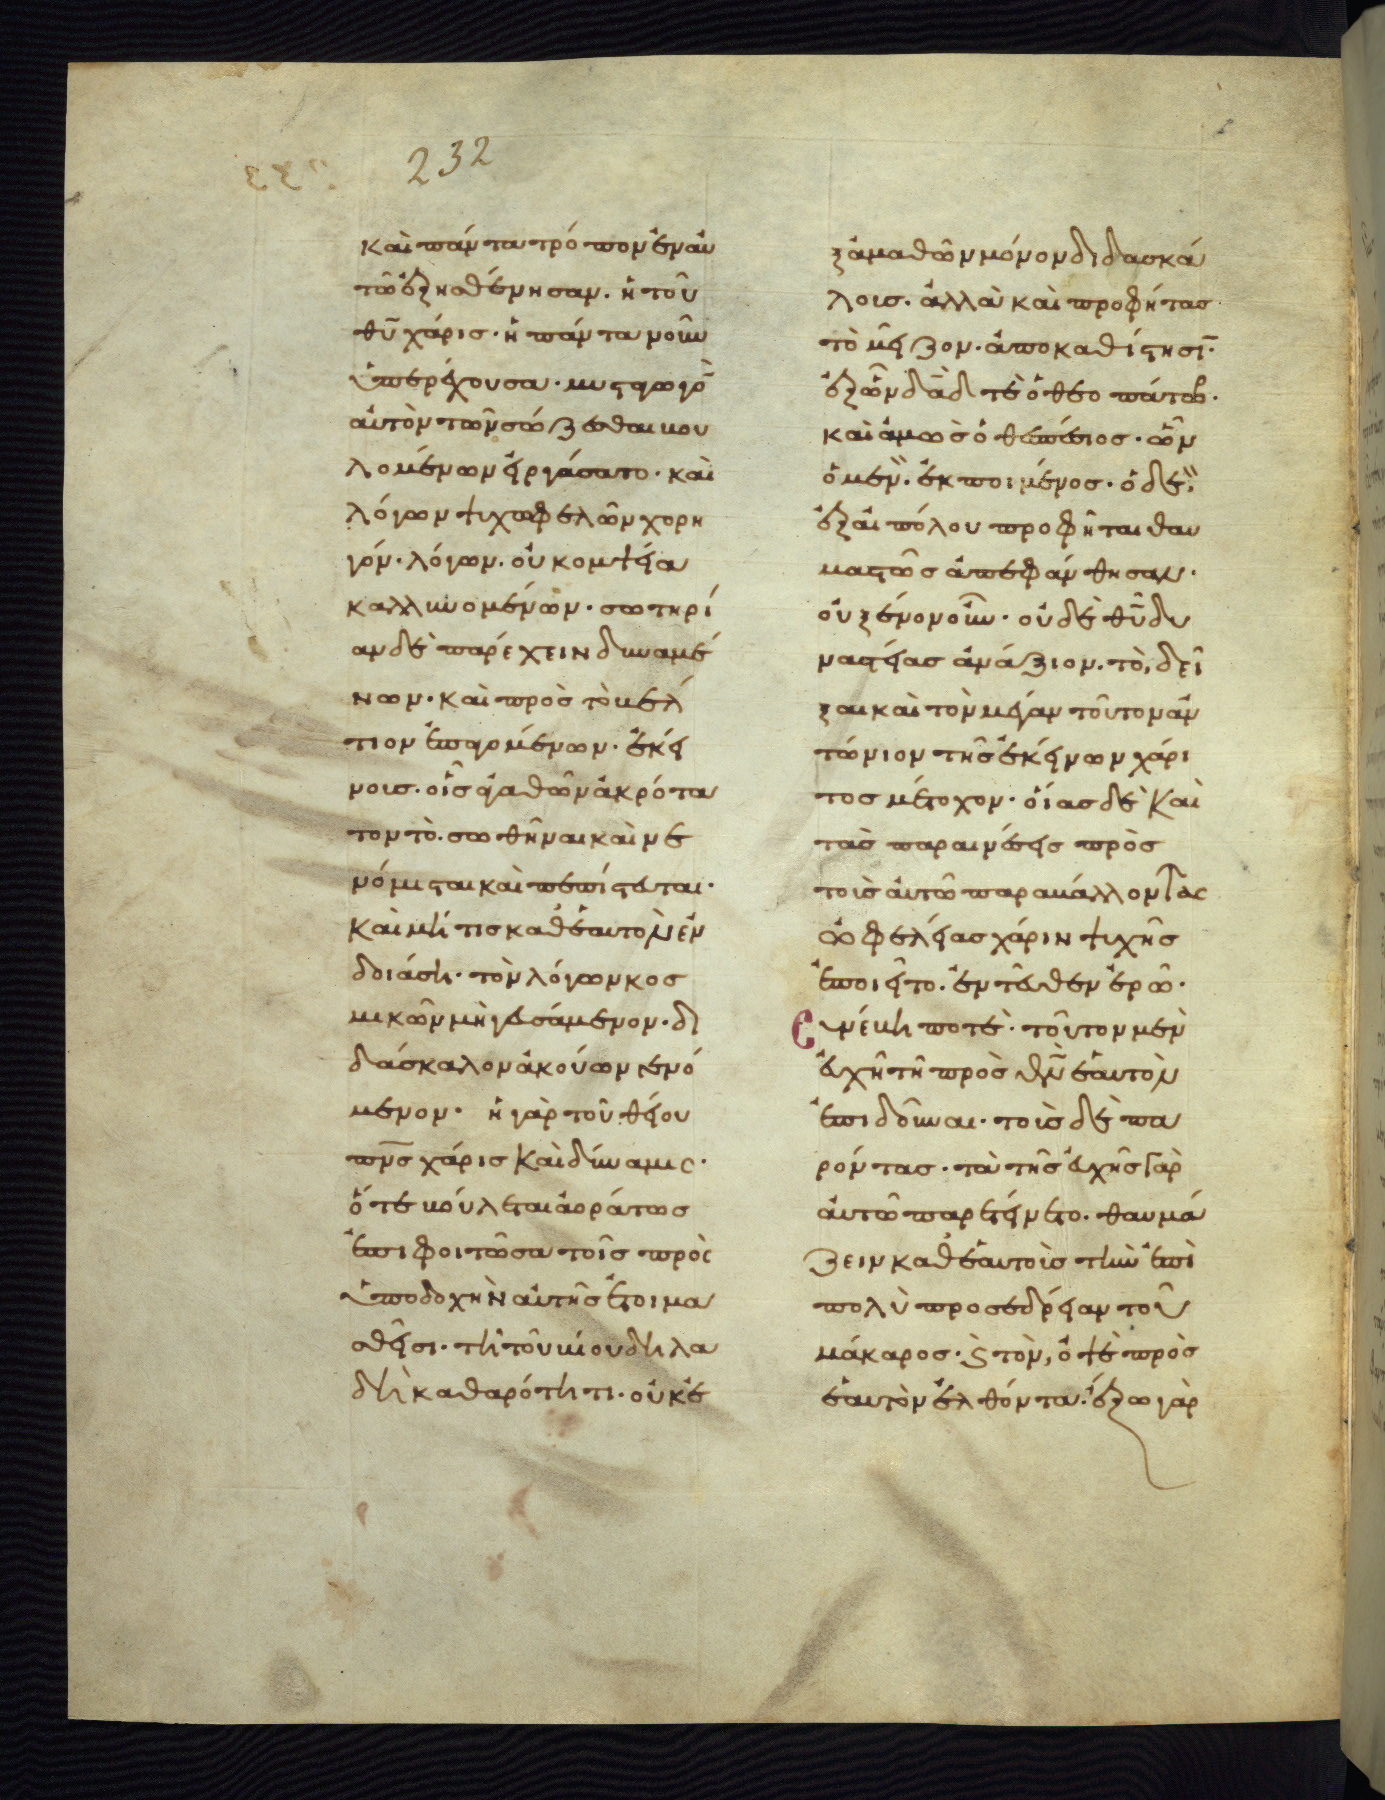 232
καὶ πάντα τρόπον ἐν αὐ
τῶ ἐξησθένησαν. ἡ τοῦ
θῦ χάρις· ἡ πάντα νοῦν
ὑπερέχουσα· μυσταγωγὸν
αὐτὸν τῶν σώζεσθαι βου
λομένων εἰργάσατο· καὶ
λόγων ψυχωφελῶν χορη
γόν· λόγων. οὐ κομψεία
καλλυνομένων· σωτηρί
αν δὲ παρέχειν δυναμέ
νων· καὶ πρὸς τὸ βέλ
τιον ἐπαγομένων· ἐκεί
νοις. οἷς ἀγαθῶν ἀκρότα
τον τὸ. σωθῆναι καὶ νε
νόμισται καὶ πεπίστευται·
Καὶ μή τις καθ' ἑαυτὸν ἐν
δοιάση· τὸν λόγων κοσ
μικῶν μὴ γευσάμενον· δι
δάσκαλον ἀκούων γενό
μενον· ἡ γὰρ τοῦ θείου
πνς χάρις καὶ δύναμις·
ὅτε βούλεται ἀοράτως
ἐπιφοιτῶσα τοῖς πρὸς
ὑποδοχὴν αὐτῆς ἑτοιμα
σθεῖσι· τῆ τοῦ βίου δηλα
δὴ καθαρότητι· οὐκ ἐ
ξ ἀμαθῶν μόνον διδασκά
λοις. ἀλλὰ καὶ προφήτας
τὸ μεῖζον· ἀποκαθίστησι·
ἐξ ὧν δᾶδ τὲ ὁ θεοπάτωρ·
καὶ ἀμὼς ὁ θεσπέσιος· ὧν
ὁ μὲν. ἐκ ποιμένος· ὁ δὲ.
ἐξ αἰπόλου προφῆται θαυ
μαστῶς ἀπεφάνθησαν·
οὐ ξένον οὖν· οὐδὲ θῦ δυ
ναστείας ἀνάξιον. τὸ, δεῖ
ξαι καὶ τὸν μέγαν τοῦτον ἀν
τώνιον τῆς ἐκείνων χάρι
τος μέτοχον· οἵας δὲ καὶ
τὰς παραινέσεις πρὸς
τοὺς αὐτῶ παραβάλλοντας
ὠφελείας χάριν ψυχῆς
ἐποιεῖτο. ἐντεῦθεν ἐρῶ·
Συνέβη ποτὲ· τοῦτον μὲν
εὐχῆ τῆ πρὸς θν ἑαυτὸν
ἐπιδοῦναι· τοὺς δὲ πα
ρόντας· τὰ τῆς εὐχῆς γὰρ
αὐτῶ παρετείνετο. θαυμά
ζειν καθ' ἑαυτοὺς τὴν ἐπὶ
πολὺ προσεδρείαν τοῦ
μάκαρος. ϛ τὸν, ὅτε πρὸς
ἑαυτὸν ἐλθόντα. ἔξω γὰρ